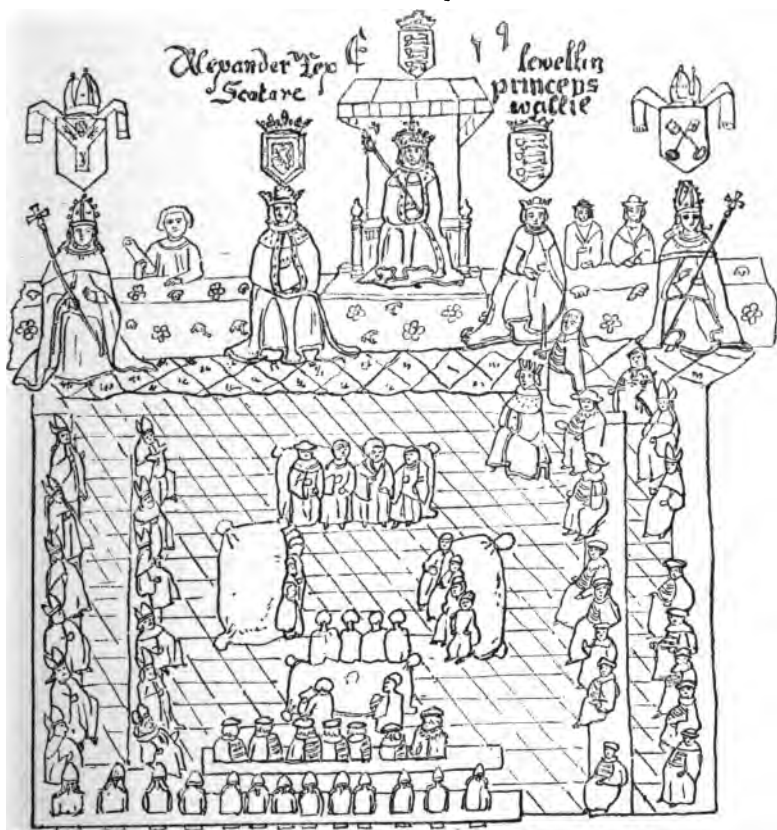 Alexander Rex
Scotore
E
lewellin
princeps
wallie